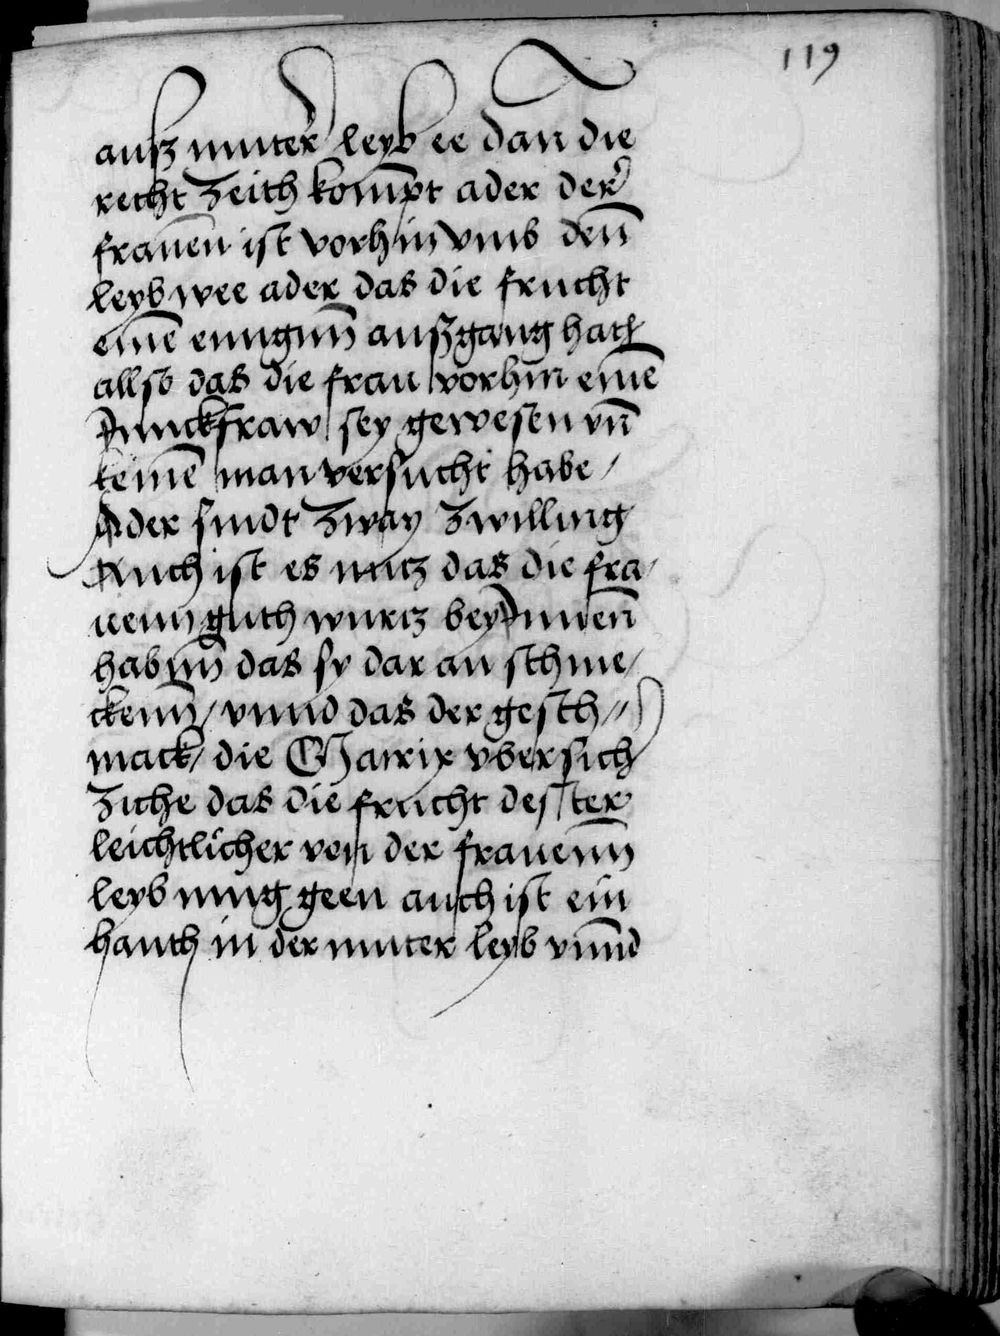 119
auß muter leyb ee dan die
recht zeith kompt ader der
frauen ist vorhin vmb den̄
leyb wee ader das die frucht
eine enngnn̄ außgang hath
allso das die frau vorhin eine
Junckfraw sey gewesen vn̄
keinē man versucht habe /
Ader sindt zway zwilling
Auch ist es nutz das die fra /
uenn guth wurtz bey Innen̄
habnn̄ das sy dar an schme /
ckenn̄ / vnnd das der gesch //
mack / die Matrix vber sich
ziche das die frucht dester
leichtlicher von der frauenn̄
leyb mug geen auch ist ein
hauth in der muter leyb vnn̄d